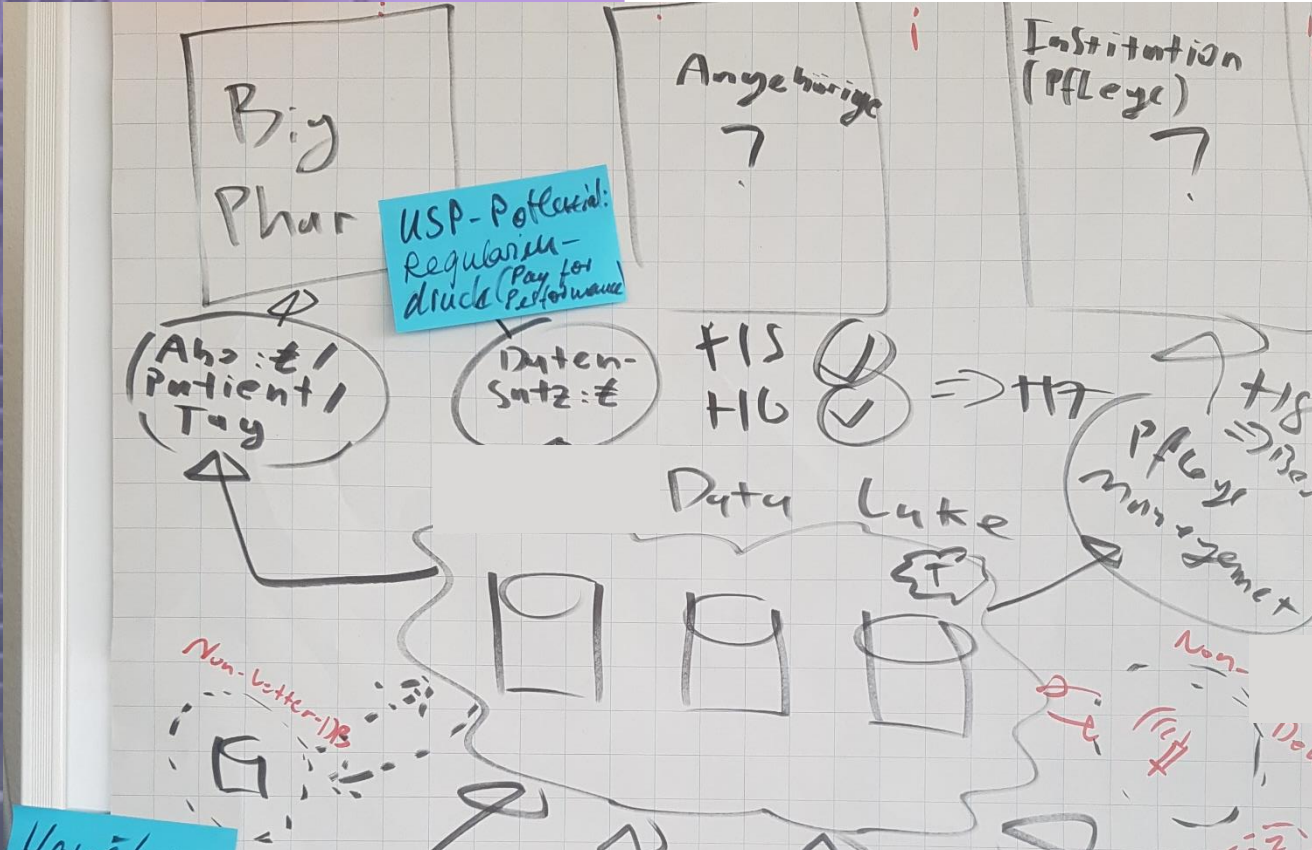 Big
Phar
USP-Potential:
Regularien-
druck (Pay for
Performance)
Angehörige
?
i
Institution
(Pflege)
?
Abo:€/
Patient/
Tag
Daten-
Satz:€
+15
+16
=> +17
+18
Pflege
Management
Data Lake
T
Non-better-DB
Non-